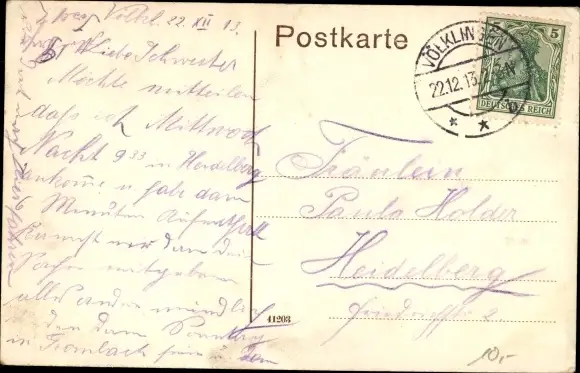 Völkl. 22. XII 13.
Liebe Schwester
Möchte mitteilen
daß ich Mittwoch
Nacht 9 33 in Heidelberg
ankomme u habe dann
Minuten Aufenthalt
Kannst mir dann dein
Sachen mitgeben
alles andere mündlich
den dann Sonntag
in
Postkarte
VÖLKLINGEN
22.12.13
5 5
DEUTSCHES REICH
Fräulein
Paula Holder
Heidelberg
41203
10,-